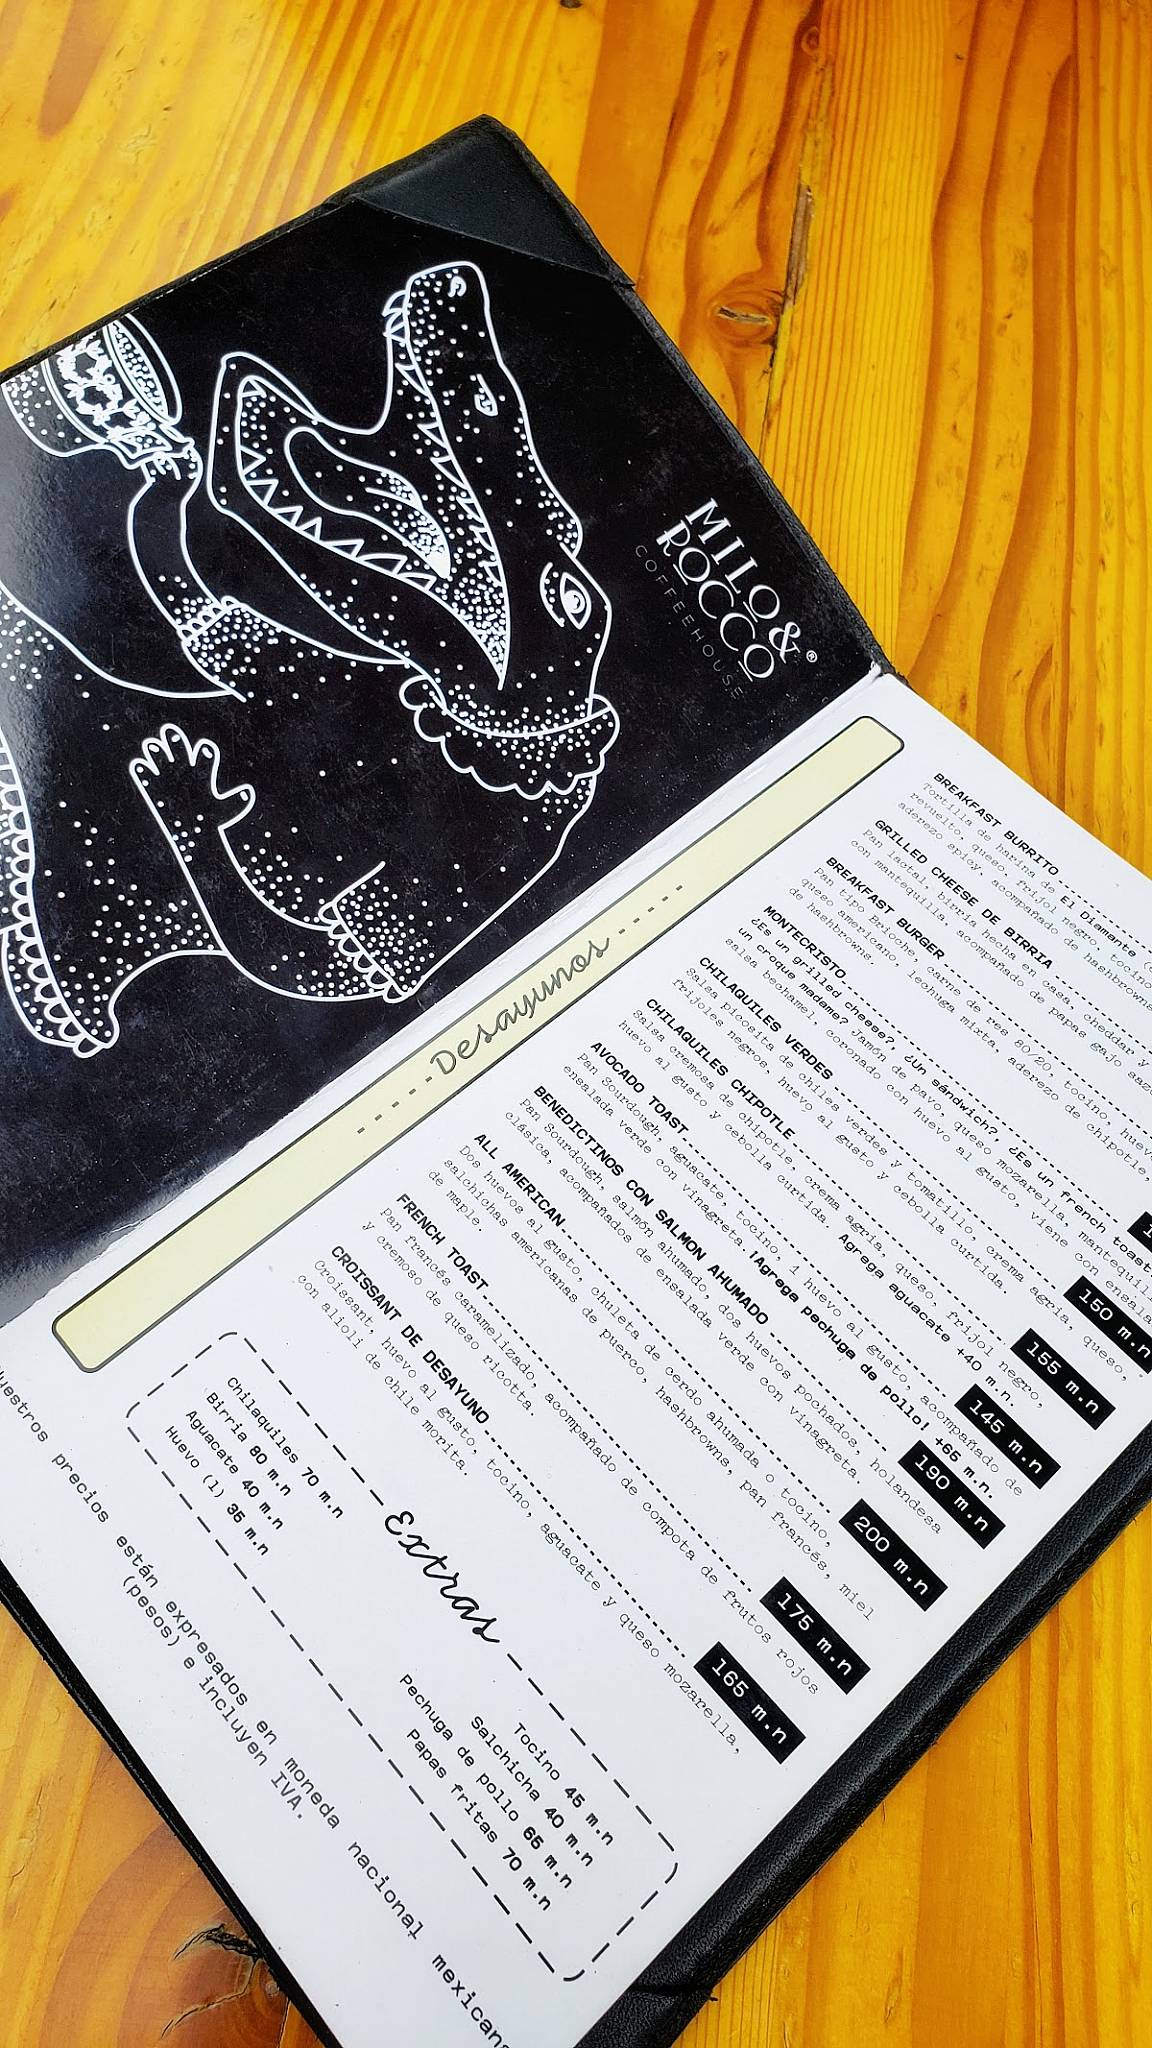 MILO &
ROCCO®
COFFEEHOUSE
-----Desayunos-----
BREAKFAST BURRITO
Tortilla de harina de El Diamante
revuelto, queso, frijol negro, tocino
aderezo spicy, acompañado de hashbrowns
GRILLED CHEESE DE BIRRIA
Pan lactal, birria hecha en casa, cheddar y
con mantequilla, acompañado de papas gajo
BREAKFAST BURGER
Pan tipo Brioche, carne de res 80/20, tocino, huevo
queso americano, lechuga mixta, aderezo de chipotle,
de hashbrowns.
MONTECRISTO
¿Es un grilled cheese?, ¿Un sándwich?, ¿Es un french toast
un croque madame? Jamón de pavo, queso mozarella,
salsa bechamel, coronado con huevo al gusto, viene con
CHILAQUILES VERDES 150 m.n
Salsa picosita de chiles verdes y tomatillo, crema agria, queso,
frijoles negros, huevo al gusto y cebolla curtida.
CHILAQUILES CHIPOTLE 155 m.n
Salsa cremosa de chipotle, crema agria, queso, frijol negro,
huevo al gusto y cebolla curtida. Agrega aguacate +40 m.n.
AVOCADO TOAST 145 m.n
Pan Sourdough, aguacate, tocino, 1 huevo al gusto, acompañado de
ensalada verde con vinagreta ¡Agrega pechuga de pollo! +65 m.n.
BENEDICTINOS CON SALMON AHUMADO 190 m.n
Pan Sourdough, salmón ahumado, dos huevos pochados, holandesa
clásica, acompañados de ensalada verde con vinagreta.
ALL AMERICAN 200 m.n
Dos huevos al gusto, chuleta de cerdo ahumada o tocino,
salchichas americanas de puerco, hashbrowns, pan francés, miel
de maple.
FRENCH TOAST 175 m.n
Pan francés caramelizado, acompañado de compota de frutos rojos
y cremoso de queso ricotta.
CROISSANT DE DESAYUNO 165 m.n
Croissant, huevo al gusto, tocino, aguacate y queso mozarella,
con alioli de chile morita.
Extras
Chilaquiles 70 m.n
Birria 80 m.n
Aguacate 40 m.n
Huevo (1) 35 m.n
Tocino 45 m.n
Salchicha 40 m.n
Pechuga de pollo 65 m.n
Papas fritas 70 m.n
precios están expresados en moneda nacional
(pesos) e incluyen IVA.